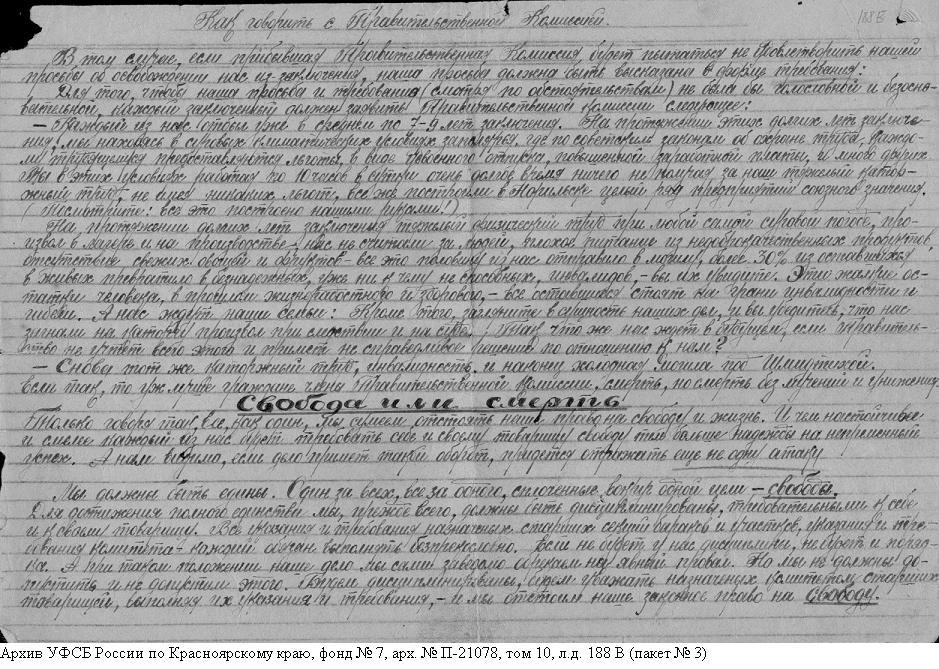 Как говорить с Правительственной Комиссией.
188 В
В том случае, если прибывшая Правительственная Комиссия будет пытаться не удовлетворить нашей
просьбы об освобождении нас из заключения, наша просьба должна быть высказана в форме требования:
Для того, чтобы наша просьба и требования (смотря по обстоятельствам) не была бы голословной и безосно-
вательной, каждый заключенный должен заявить Правительственной комиссии следующее:
– Каждый из нас отбыл уже в среднем по 7-9 лет заключения. На протяжении этих долгих лет заключе-
ния, мы находясь в суровых климатических условиях заполярья, где по советским законам об охране труда каждо-
му трудящемуся предоставляются льготы, в виде отпуска, повышенной заработной платы, и много других
Мы в этих условиях работая по 10 часов в сутки очень долгое время ничего не получая за наш тяжелый катор-
жный труд, не имея никаких льгот, все же построили в Норильске целый ряд предприятий союзного значения.
(Посмотрите: все это построено нашими руками!)
На протяжении долгих лет заключения тяжелый физический труд при любой самой суровой погоде, про-
извол в лагере и на производстве, нас не считали за людей, плохое питание из недоброкачественных продуктов,
отсутствие свежих овощей и фруктов – все это половину из нас отправило в могилу, более 30% из оставшихся
в живых превратило в безнадежных, уже ни к чему не способных, инвалидов, – вы их увидите. Эти жалкие ос-
татки человека, в прошлом жизнерадостного и здорового, – все оставшиеся стоят на грани инвалидности и
гибели. А нас ждут наши семьи! Кроме этого, загляните в сущность наших дел, и вы убедитесь, что нас
загнали на каторгу произвол при следствии и на суде. Так что же нас ждет в будущем, если Правитель-
ство не учтет всего этого и примет не справедливое решение по отношению к нам?
– Снова тот же каторжный труд, инвалидность, и наконец холодная могила под Шмидтихой.
Если так, то уж лучше граждане члены Правительственной комиссии, смерть, но смерть без мучений и унижения
Свобода или смерть
Только говоря так все, как один, мы сумеем отстоять наше право на свободу и жизнь. И чем настойчивее
и смелее каждый из нас будет требовать себе и своему товарищу свободу тем больше надежды на непременный
успех. А нам видимо, если дело примет такой оборот, придется отражать еще не одну атаку
Мы должны быть едины. Один за всех, все за одного, сплоченные вокруг одной цели – свободы.
Для достижения полного единства мы, прежде всего, должны быть дисциплинированы, требовательными к себе
и к своему товарищу. Все указания и требования назначеных старших секций бараков и участков, указания и тре-
бования комитета – каждый обязан выполнять безпрекословно. Если не будет у нас дисциплины, не будет и поряд-
ка. А при таком положении наше дело мы сами заведомо обрекаем на явный провал. Но мы не должны до-
пустить и не допустим этого. Будем дисциплинированы, будем уважать назначеных комитетом старших
товарищей, выполняя их указания и требования, – и мы отстоим наше законное право на свободу.
Архив УФСБ России по Красноярскому краю, фонд № 7, арх. № П-21078, том 10, л.д. 188 В (пакет № 3)